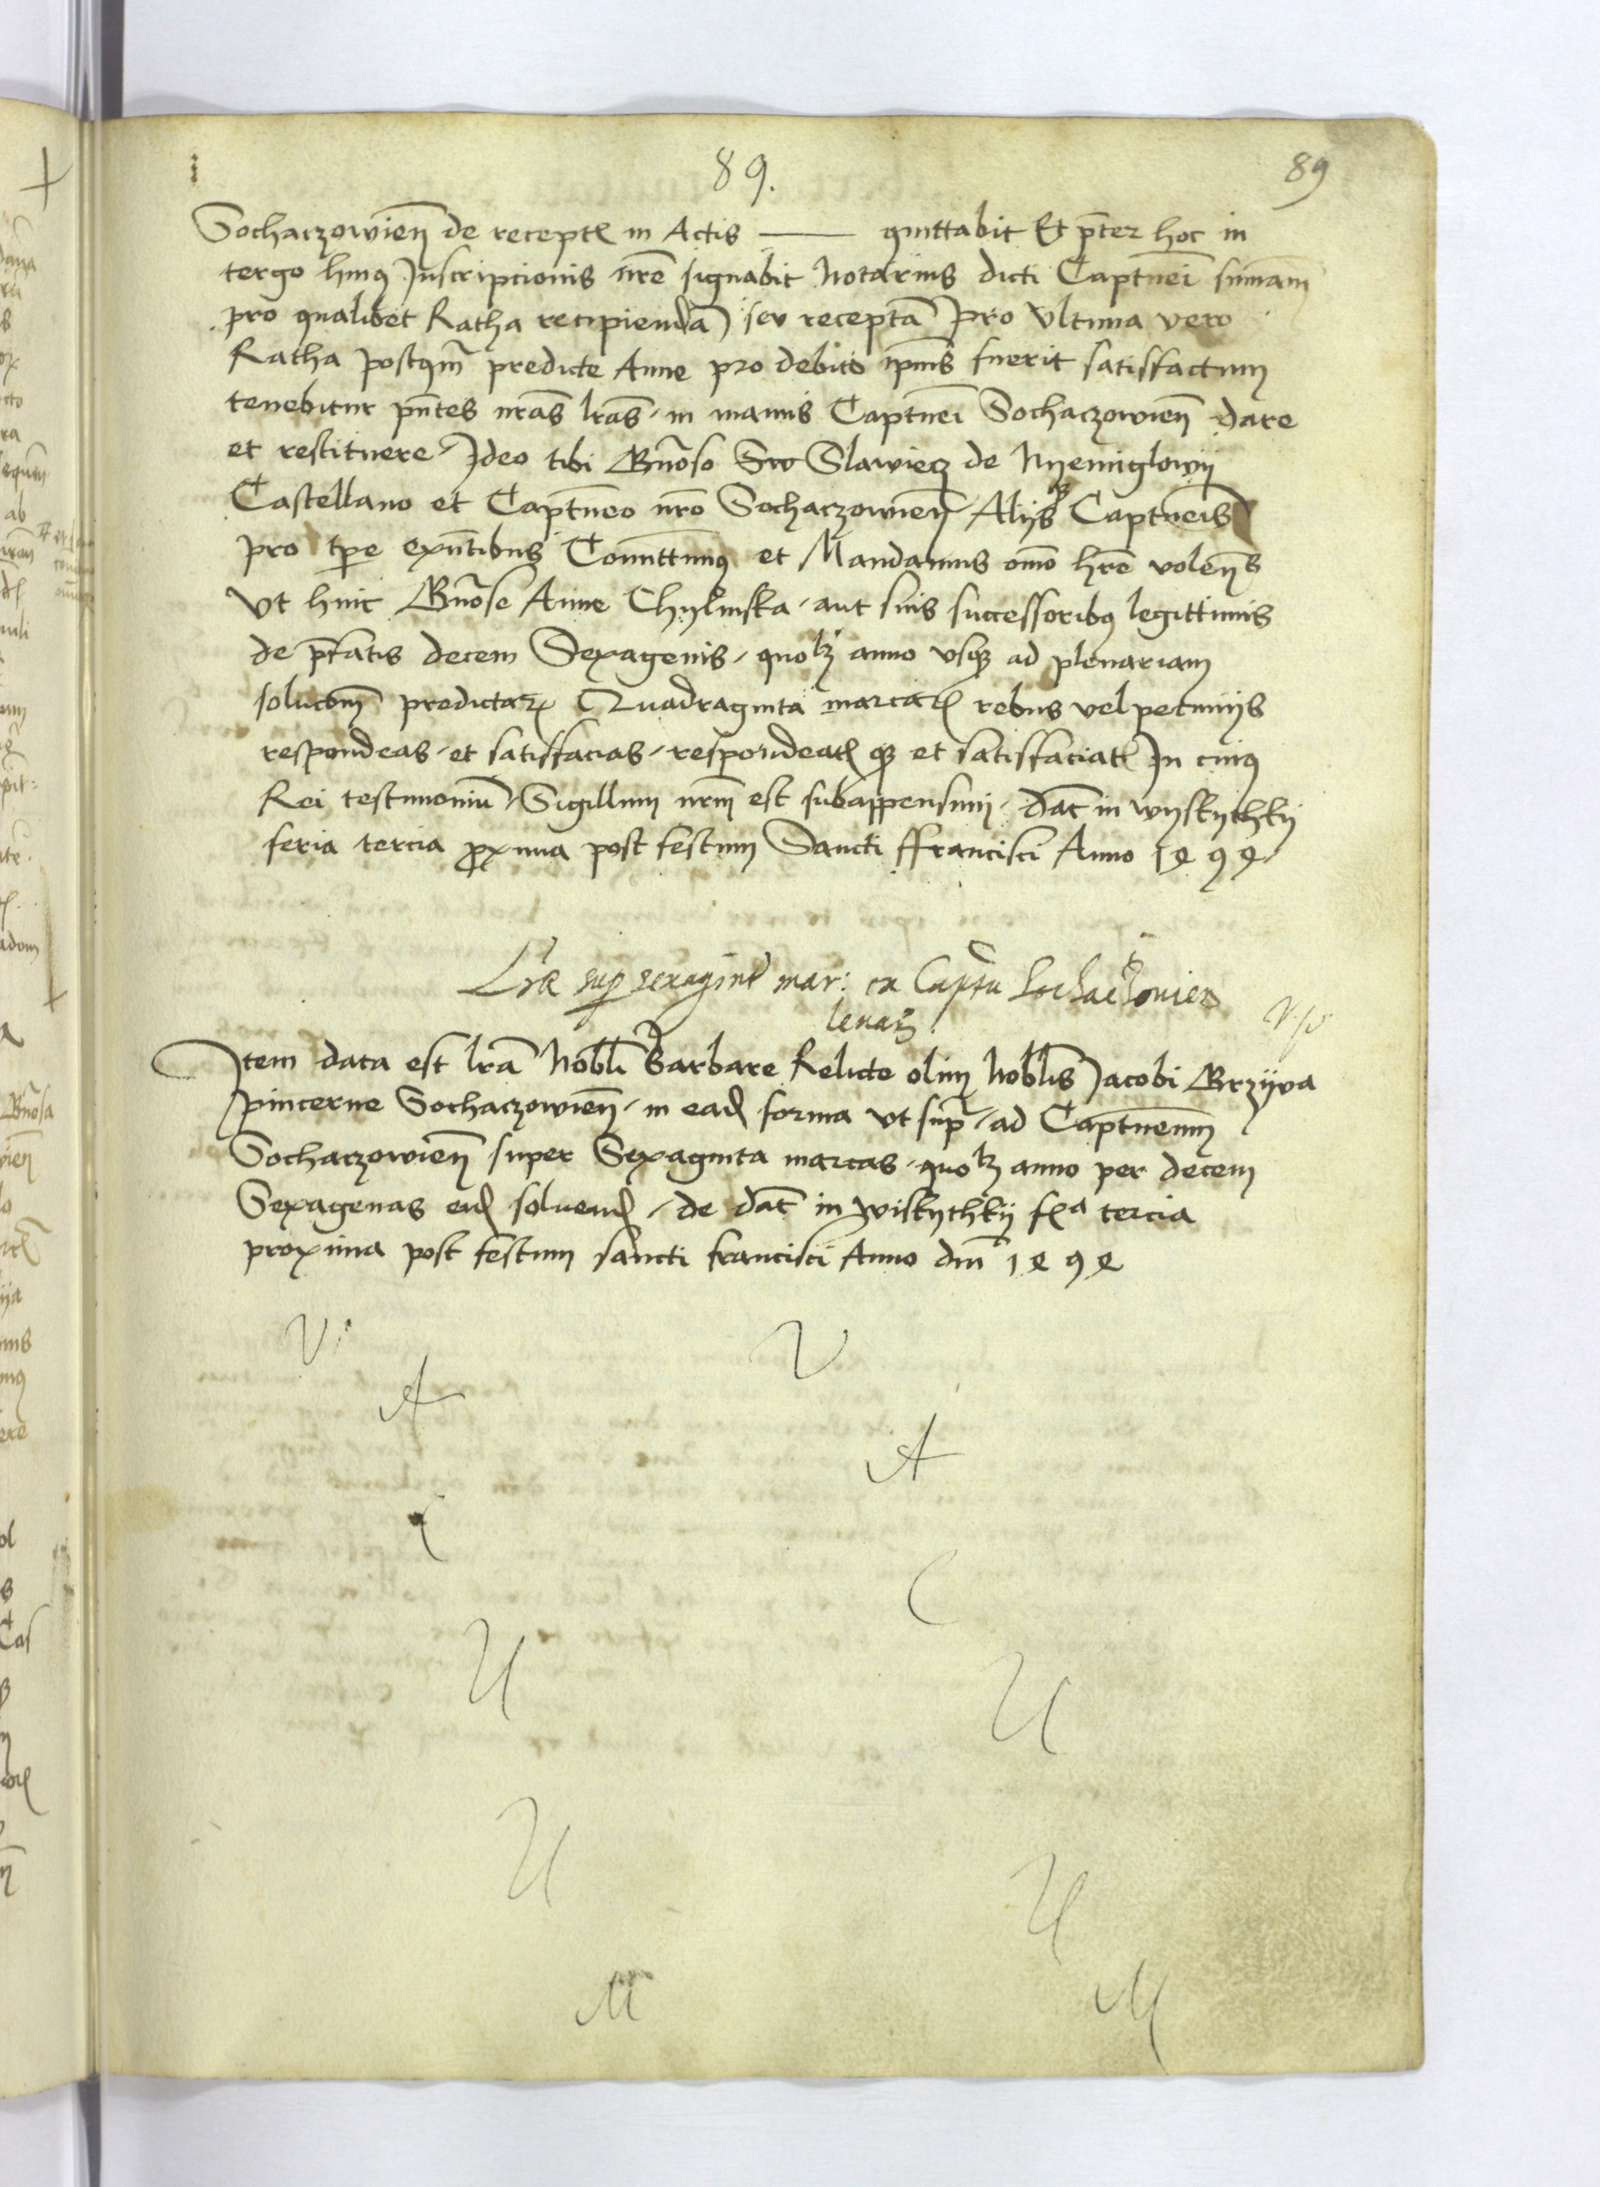 89.
89
Sochaczowien̄ de recept in Actis —— quittabit Et p̄ter hoc in
tergo huiꝰ Inscripcionis nr̄e signabit Notarius dicti Captn̄ei sum̄am
pro qualibet Ratha recipiendā seu receptā Pro Ultima vero
Ratha postqm̄ predicte Anne pro debito ip̄ius fuerit satisfactum
tenebitur pn̄tes nr̄as lr̄as in manus Captn̄ei Sochaczowien̄ dare
et restituere Ideo tibi Gn̄oso Sw Slawiecz de Nyemiglowy
Castellano et Captn̄eo nr̄o Sochaczowien̄ Alijsqꝫ Captn̄eis
pro tp̄e exn̄tibus Com̄ittimꝰ et Mandamus om̄o hr̄e volen̄s
Ut huic Gn̄ose Anne Chylinska aut suis successoribꝰ legittimis
de pr̄fatis decem Sexagenis quolꝫ anno usqꝫ ad plenariam
soluco̅m predictaꝝ Quadraginta marcaꝝ rebus vel pecunijs
respondeas et satisfacias respondeat qꝫ et satisfaciat In cuiꝰ
Rei testimoniū Sigillum nr̄m est subappensum Dat̄ in Wyskythky
feria tercia proxima post festum Sancti ffrancisci Anno 1494
Lr̄æ sup sexagint mar: ex Captn̄ Sochaczovien
Item data est lr̄a Nobl̄i Barbare Relicte olim Nobl̄is Jacobi Brzyva
Pincerne Sochaczowien̄ in ead forma ut supr̄ ad Captn̄eum
Sochaczowien̄ super Sexaginta marcas quolꝫ anno per decem
Sexagenas eid soluend de dat̄ in Wiskythky fꝫᵃ tercia
proxima post festum sancti francisci Anno dn̄i 1494
V
V
A
A
C
C
U
U
U
U
M
M